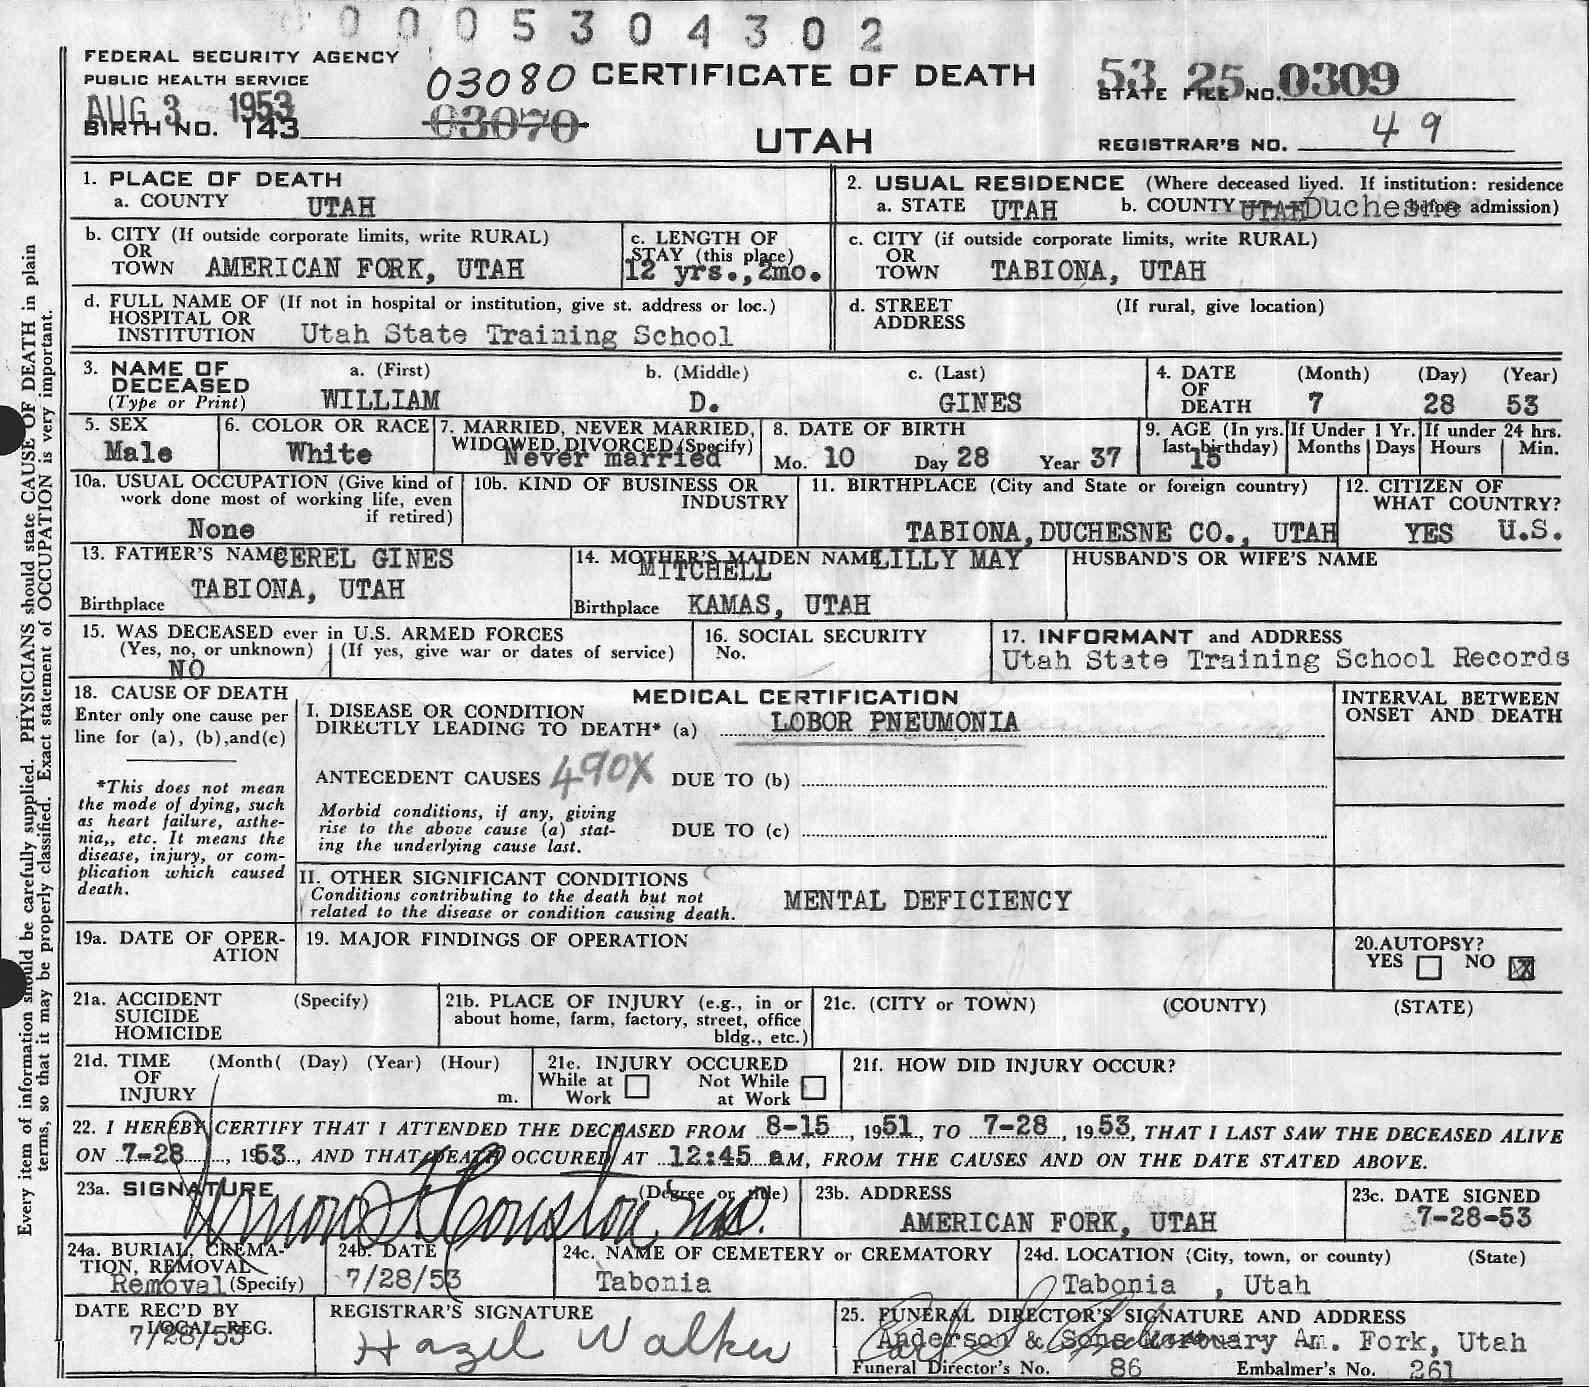 0 0 0 5 3 0 4 3 0 2
FEDERAL SECURITY AGENCY
PUBLIC HEALTH SERVICE
AUG 3 1953
BIRTH NO. 143
03080
03070
CERTIFICATE OF DEATH
UTAH
53 25 0309
STATE FILE NO.
REGISTRAR'S NO. 49
1. PLACE OF DEATH
a. COUNTY UTAH
2. USUAL RESIDENCE (Where deceased lived. If institution: residence before admission)
a. STATE UTAH b. COUNTY UTAH Duchesne
b. CITY (If outside corporate limits, write RURAL)
OR
TOWN AMERICAN FORK, UTAH
c. LENGTH OF
STAY (this place)
12 yrs., 2mo.
c. CITY (if outside corporate limits, write RURAL)
OR
TOWN TABIONA, UTAH
d. FULL NAME OF (If not in hospital or institution, give st. address or loc.)
HOSPITAL OR
INSTITUTION Utah State Training School
d. STREET (If rural, give location)
ADDRESS
3. NAME OF
DECEASED
(Type or Print)
a. (First) b. (Middle) c. (Last)
WILLIAM D. GINES
4. DATE (Month) (Day) (Year)
OF
DEATH 7 28 53
5. SEX
Male
6. COLOR OR RACE
White
7. MARRIED, NEVER MARRIED,
WIDOWED, DIVORCED (Specify)
Never married
8. DATE OF BIRTH
Mo. 10 Day 28 Year 37
9. AGE (In yrs. last birthday)
15
If Under 1 Yr.
Months Days
If under 24 hrs.
Hours Min.
10a. USUAL OCCUPATION (Give kind of
work done most of working life, even
if retired)
None
10b. KIND OF BUSINESS OR
INDUSTRY
11. BIRTHPLACE (City and State or foreign country)
TABIONA, DUCHESNE CO., UTAH
12. CITIZEN OF
WHAT COUNTRY?
YES U.S.
13. FATHER'S NAME CEREL GINES
TABIONA, UTAH
Birthplace
14. MOTHER'S MAIDEN NAME LILLY MAY
MITCHELL
Birthplace KAMAS, UTAH
HUSBAND'S OR WIFE'S NAME
15. WAS DECEASED ever in U.S. ARMED FORCES
(Yes, no, or unknown) (If yes, give war or dates of service)
NO
16. SOCIAL SECURITY
No.
17. INFORMANT and ADDRESS
Utah State Training School Records
18. CAUSE OF DEATH
Enter only one cause per
line for (a), (b), and (c)
*This does not mean
the mode of dying, such
as heart failure, asthe-
nia,, etc. It means the
disease, injury, or com-
plication which caused
death.
MEDICAL CERTIFICATION
I. DISEASE OR CONDITION
DIRECTLY LEADING TO DEATH* (a) LOBOR PNEUMONIA
ANTECEDENT CAUSES 490X DUE TO (b)
Morbid conditions, if any, giving
rise to the above cause (a) stat-
ing the underlying cause last.
DUE TO (c)
INTERVAL BETWEEN
ONSET AND DEATH
II. OTHER SIGNIFICANT CONDITIONS
Conditions contributing to the death but not
related to the disease or condition causing death.
MENTAL DEFICIENCY
19a. DATE OF OPER-
ATION
19. MAJOR FINDINGS OF OPERATION
20. AUTOPSY?
YES NO X
21a. ACCIDENT (Specify)
SUICIDE
HOMICIDE
21b. PLACE OF INJURY (e.g., in or
about home, farm, factory, street, office
bldg., etc.)
21c. (CITY or TOWN) (COUNTY) (STATE)
21d. TIME (Month( (Day) (Year) (Hour)
OF
INJURY m.
21e. INJURY OCCURED
While at Work Not While at Work
21f. HOW DID INJURY OCCUR?
22. I HEREBY CERTIFY THAT I ATTENDED THE DECEASED FROM 8-15, 1951, TO 7-28, 1953, THAT I LAST SAW THE DECEASED ALIVE
ON 7-28, 1953, AND THAT DEATH OCCURED AT 12:45 aM, FROM THE CAUSES AND ON THE DATE STATED ABOVE.
23a. SIGNATURE (Degree or title)
M.D.
23b. ADDRESS
AMERICAN FORK, UTAH
23c. DATE SIGNED
7-28-53
24a. BURIAL, CREMA-
TION, REMOVAL
Removal (Specify)
24b. DATE
7/28/53
24c. NAME OF CEMETERY or CREMATORY
Tabonia
24d. LOCATION (City, town, or county) (State)
Tabonia , Utah
DATE REC'D BY
LOCAL REG.
7/28/53
REGISTRAR'S SIGNATURE
Hazel Walker
25. FUNERAL DIRECTOR'S SIGNATURE AND ADDRESS
Anderson & Sons Mortuary Am. Fork, Utah
Funeral Director's No. 86 Embalmer's No. 261
Every item of information should be carefully supplied. PHYSICIANS should state CAUSE OF DEATH in plain
terms, so that it may be properly classified. Exact statement of OCCUPATION is very important.